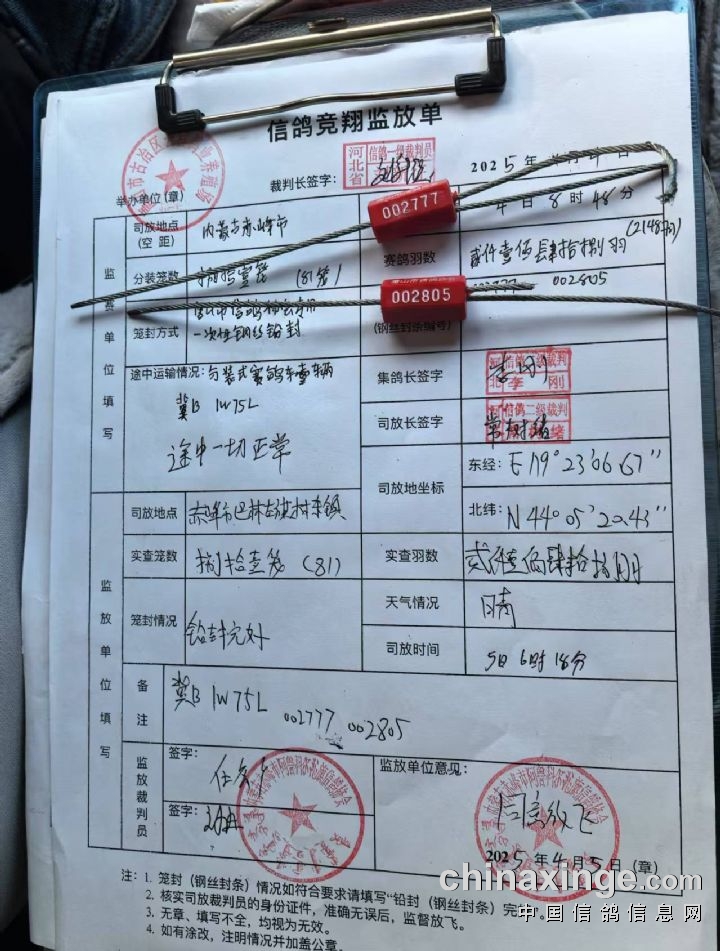 信鸽竞翔监放单
河北省
信鸽一级裁判员
裁判长签字:
2025年
举办单位(章)
司放地点
(空 距)
内蒙古赤峰市
4日8时48分
002777
赛鸽羽数
贰仟壹佰肆拾捌羽
(2148羽)
监赛单位填写
分装笼数
捌拾壹笼 (81笼)
002777 002805
002805
笼封方式
一次性钢丝铅封
(钢丝封条编号)
途中运输情况:
冀B 1W75L
途中一切正常
集鸽长签字
李刚
司放长签字
信鸽二级裁判
司放地坐标
东经: E 119°23'06.67"
北纬: N 44°05'20.43"
监放单位填写
司放地点
实查笼数
捌拾壹笼 (81)
实查羽数
笼封情况
铅封完好
天气情况
晴
司放时间
5日6时18分
备注
冀B 1W75L
002777 002805
监放裁判员
签字:
签字:
监放单位意见:
同意放飞
2025年4月5日(章)
注: 1. 笼封(钢丝封条)情况如符合要求请填写"铅封(钢丝封条)完
2. 核实司放裁判员的身份证件,准确无误后,监督放飞。
3. 无章、填写不全,均视为无效。
4. 如有涂改,注明情况并加盖公章。
chinaxinge.com
中国信鸽信息网